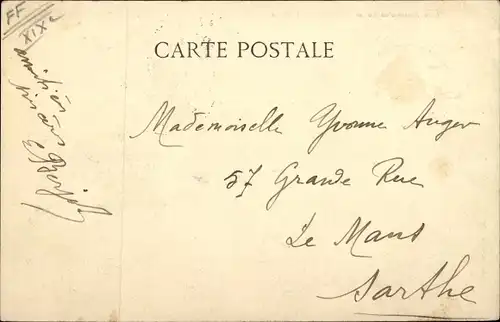 FF
XIXe
CARTE POSTALE
Mademoiselle Yvonne Auger
57 Grande Rue
Le Mans
Sarthe